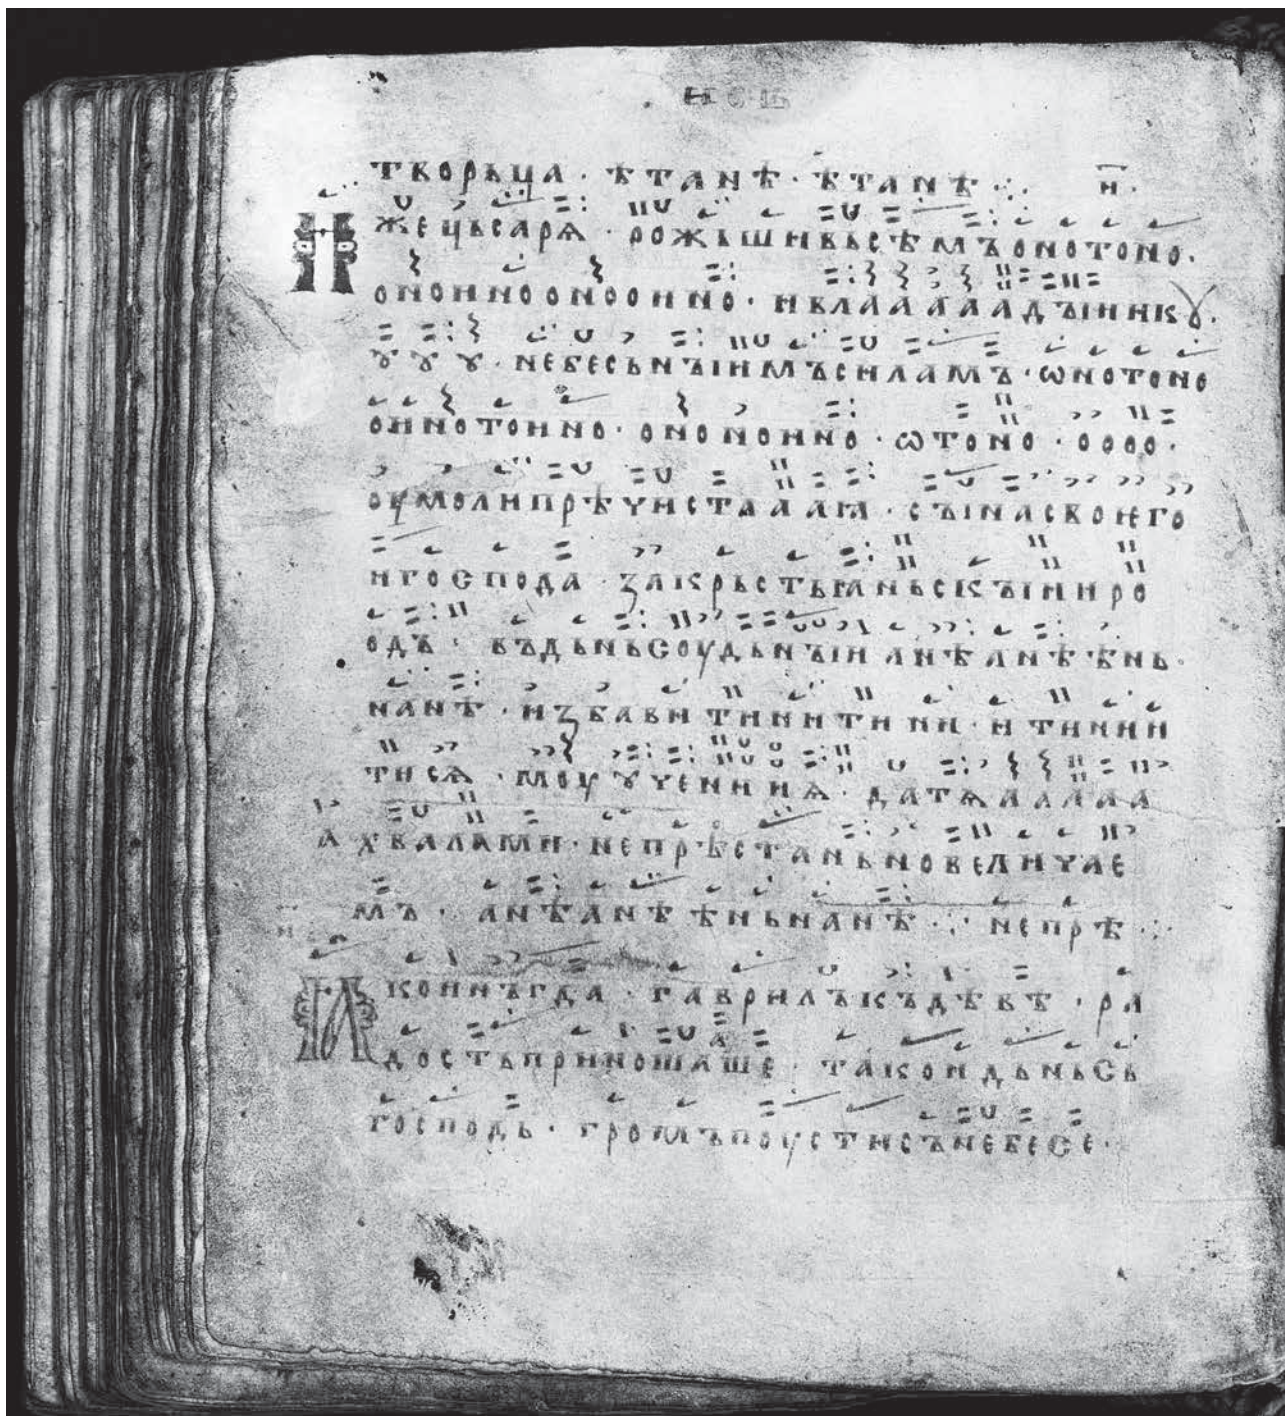 творьца · ѣтанѣ · ѣтанѣ ⁘ н҃ ·
Ижецѣсарѧ · рожьшивьсѣмъонотоно ·
онониноонооино · ивлаааааадъіиикꙋ ·
ꙋꙋꙋ · небесьнъіимъсиламъ · ѡнотоно
оинотоино · онононно · ѡтоно · оооо ·
оумолипрѣчистааꙗ · съінасвоѥго
игоспода · закрьстьꙗньскъіиро
одъ · въдьньсоудьнъіианѣанѣѣнь ·
нанѣ · избавитинитини · итинии
тисѧ · моуꙋчениꙗ · датѧаааа
ахвалами · непрѣстаньновеличае
мъ · анѣанѣѣньнанѣ ⁘ непрѣ ⁘
Ꙗкоинъгда · гаврилъкъдѣвѣ · ра
достьприношаше · такоидьньсь
господь · громъпоустисънебесе ·